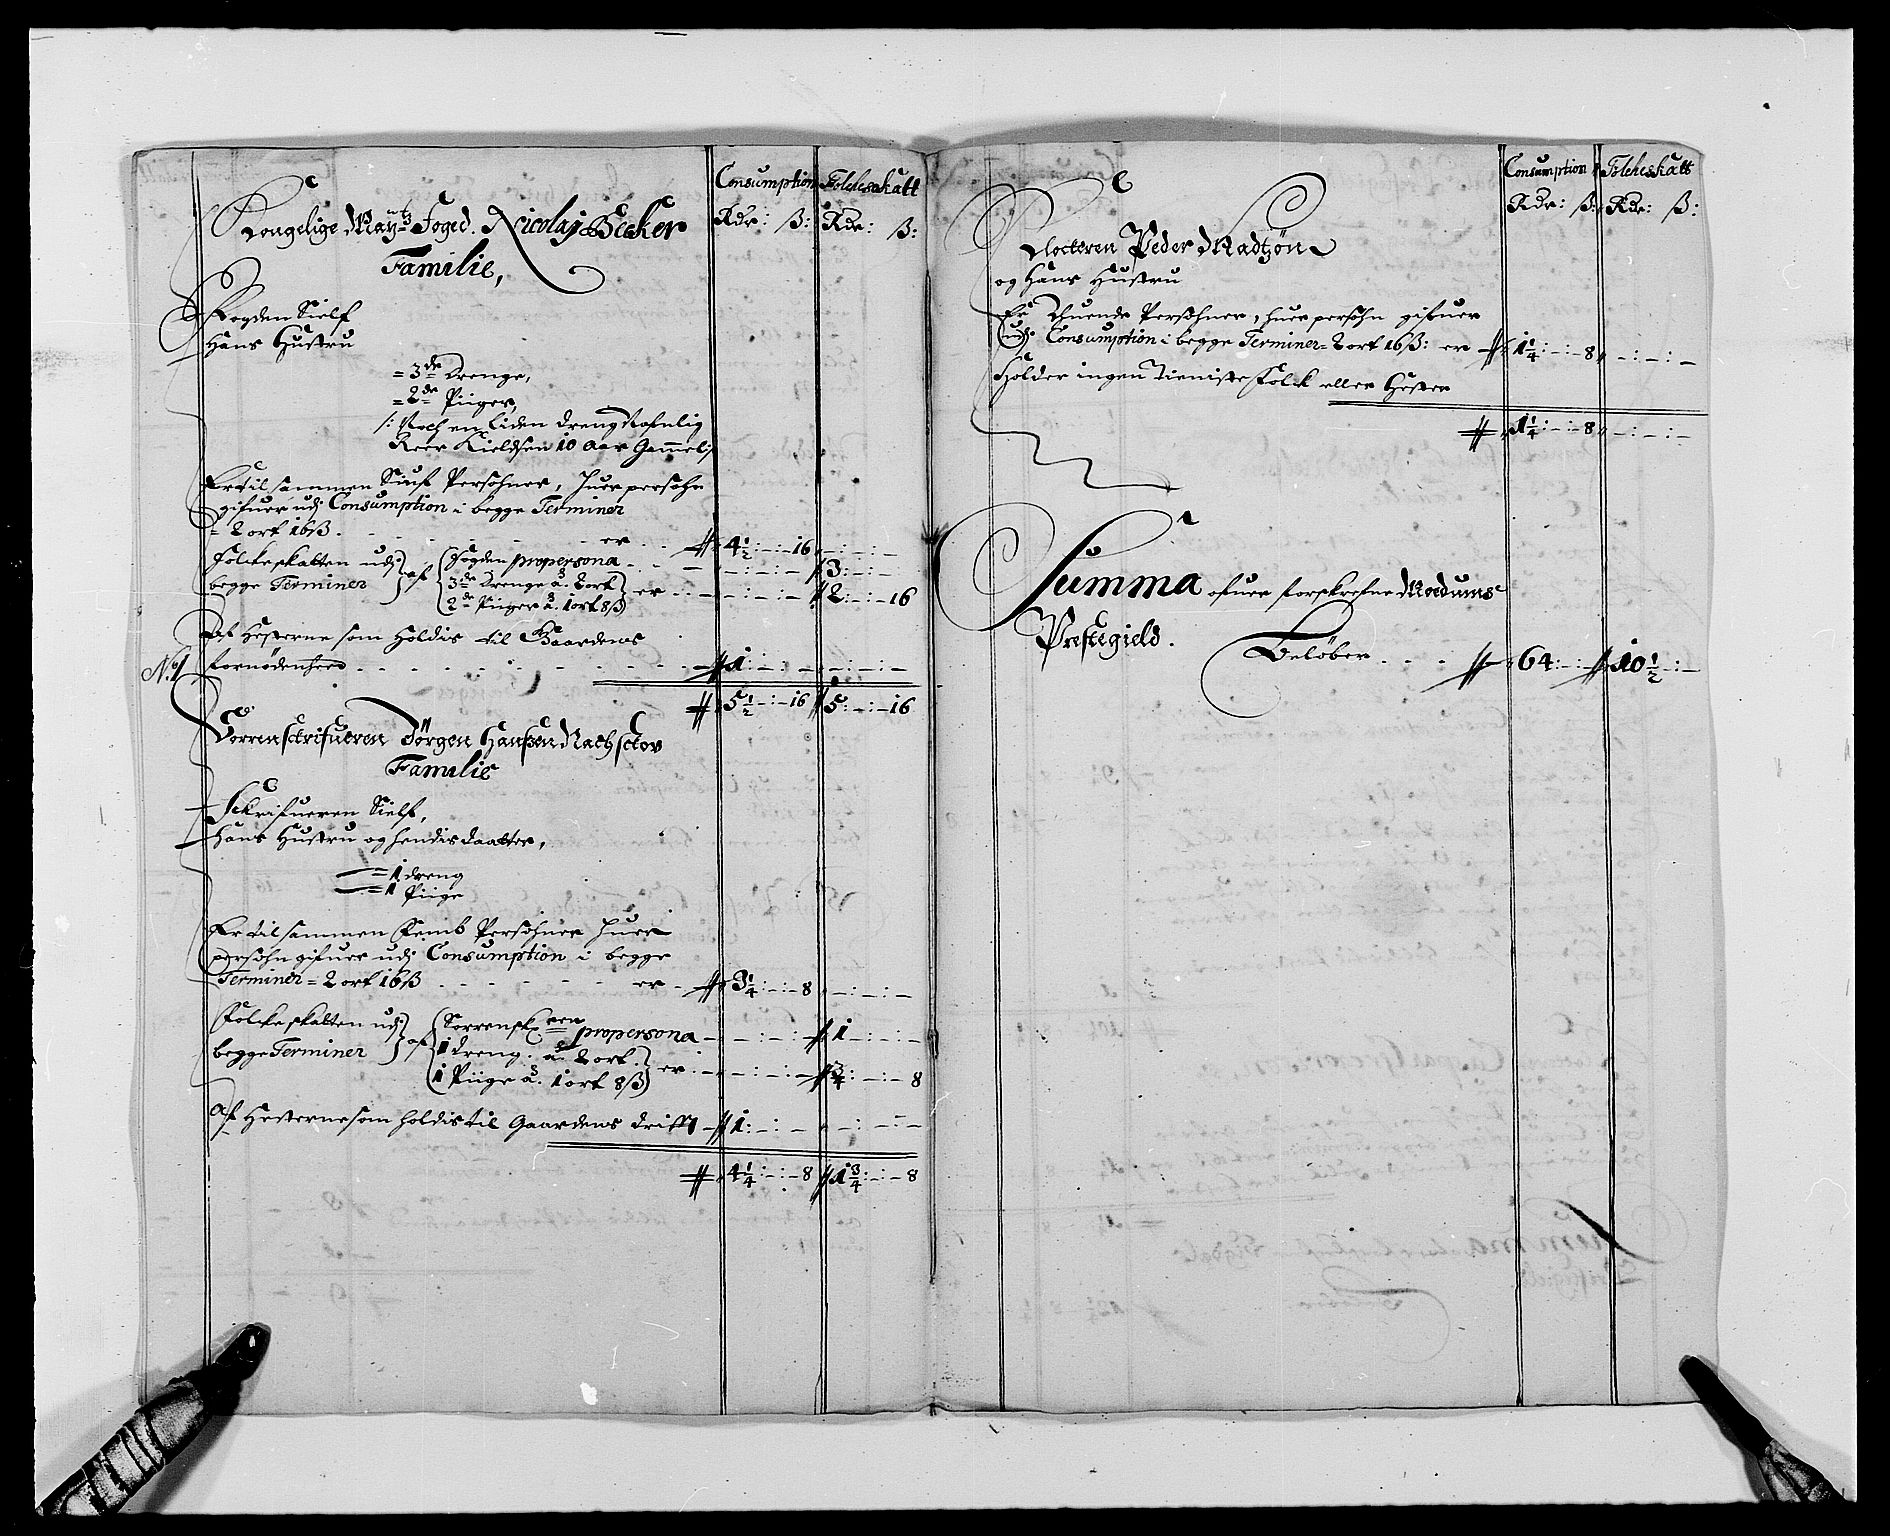 Consumption Folcheskatt
Kongelige Mayts Foged. Nicolaj Becker
Rdr: ß: Rdr: ß:
Familie,
Fogden Sielf
Hans Hustru
= 3de Drenge,
= 2de Piiger,
/: Noch en liden dreng Nafnlig
Peer Kieldsen 10 Aar Gammel :/
Er til sammen Siuf Persohner, huer persohn
gifuer udj Consumption i begge Terminer
= 2 ort 16 ß. er 4½ : – : – 16 – : – : –
Folckeskatten udj begge Terminer } af { Fogden propersona – : – : – 3 : – : –
3de Drenge å. 2 ort
2de Piiger å. 1 ort 8 ß } er – : – : – 2 : – : – 16
Af Hesterne som Holdis til Gaardens
No. 1 fornødenhed 1 : – : – – : – : –
5½ – : – 16 5 : – : – 16
Sorrenskrifueren Jørgen Hanßen Nachschov
Familie
Schrifueren Sielf,
Hans Hustru og hendis daatter,
= 1 dreng
= 1 Piige
Er til sammen Femb Persohner huer
persohn gifuer udj Consumption i begge
Terminer = 2 ort 16 ß er 3¼ : – : – 8 – : – : –
Folckeskatten udj begge Terminer } af { Sorrensk: eren propersona – : – : – 1 : – : –
1 dreng. å. 2 ort.
1 Piige å. 1 ort 8 ß } er – : – : – ¾ : – : – 8
Af Hesterne som holdis til Gaardens drifft 1 : – : – – : – : –
4¼ : – : – 8 1¾ : – : – 8
Consumption Folcheskatt
Rdr: ß: Rdr: ß:
Klocheren Peder Madtzøn
og Hans Hustru
Er Thuende Persohner, huer persohn gifuer
udj Consumption i begge Terminer = 2 ort 16 ß: er 1¼ : – : – 8 – : – : –
Holder ingen Tieniste Folck eller Hester
1¼ : – : – 8 – : – : –
Summa ofuer forskrefne Modums
Prestegield.
Beløber 64 : – : – 10½ : –